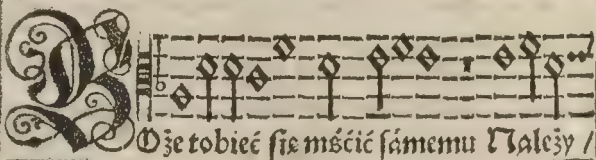 BOże tobieć ſię mśćić ſámemu Należy /